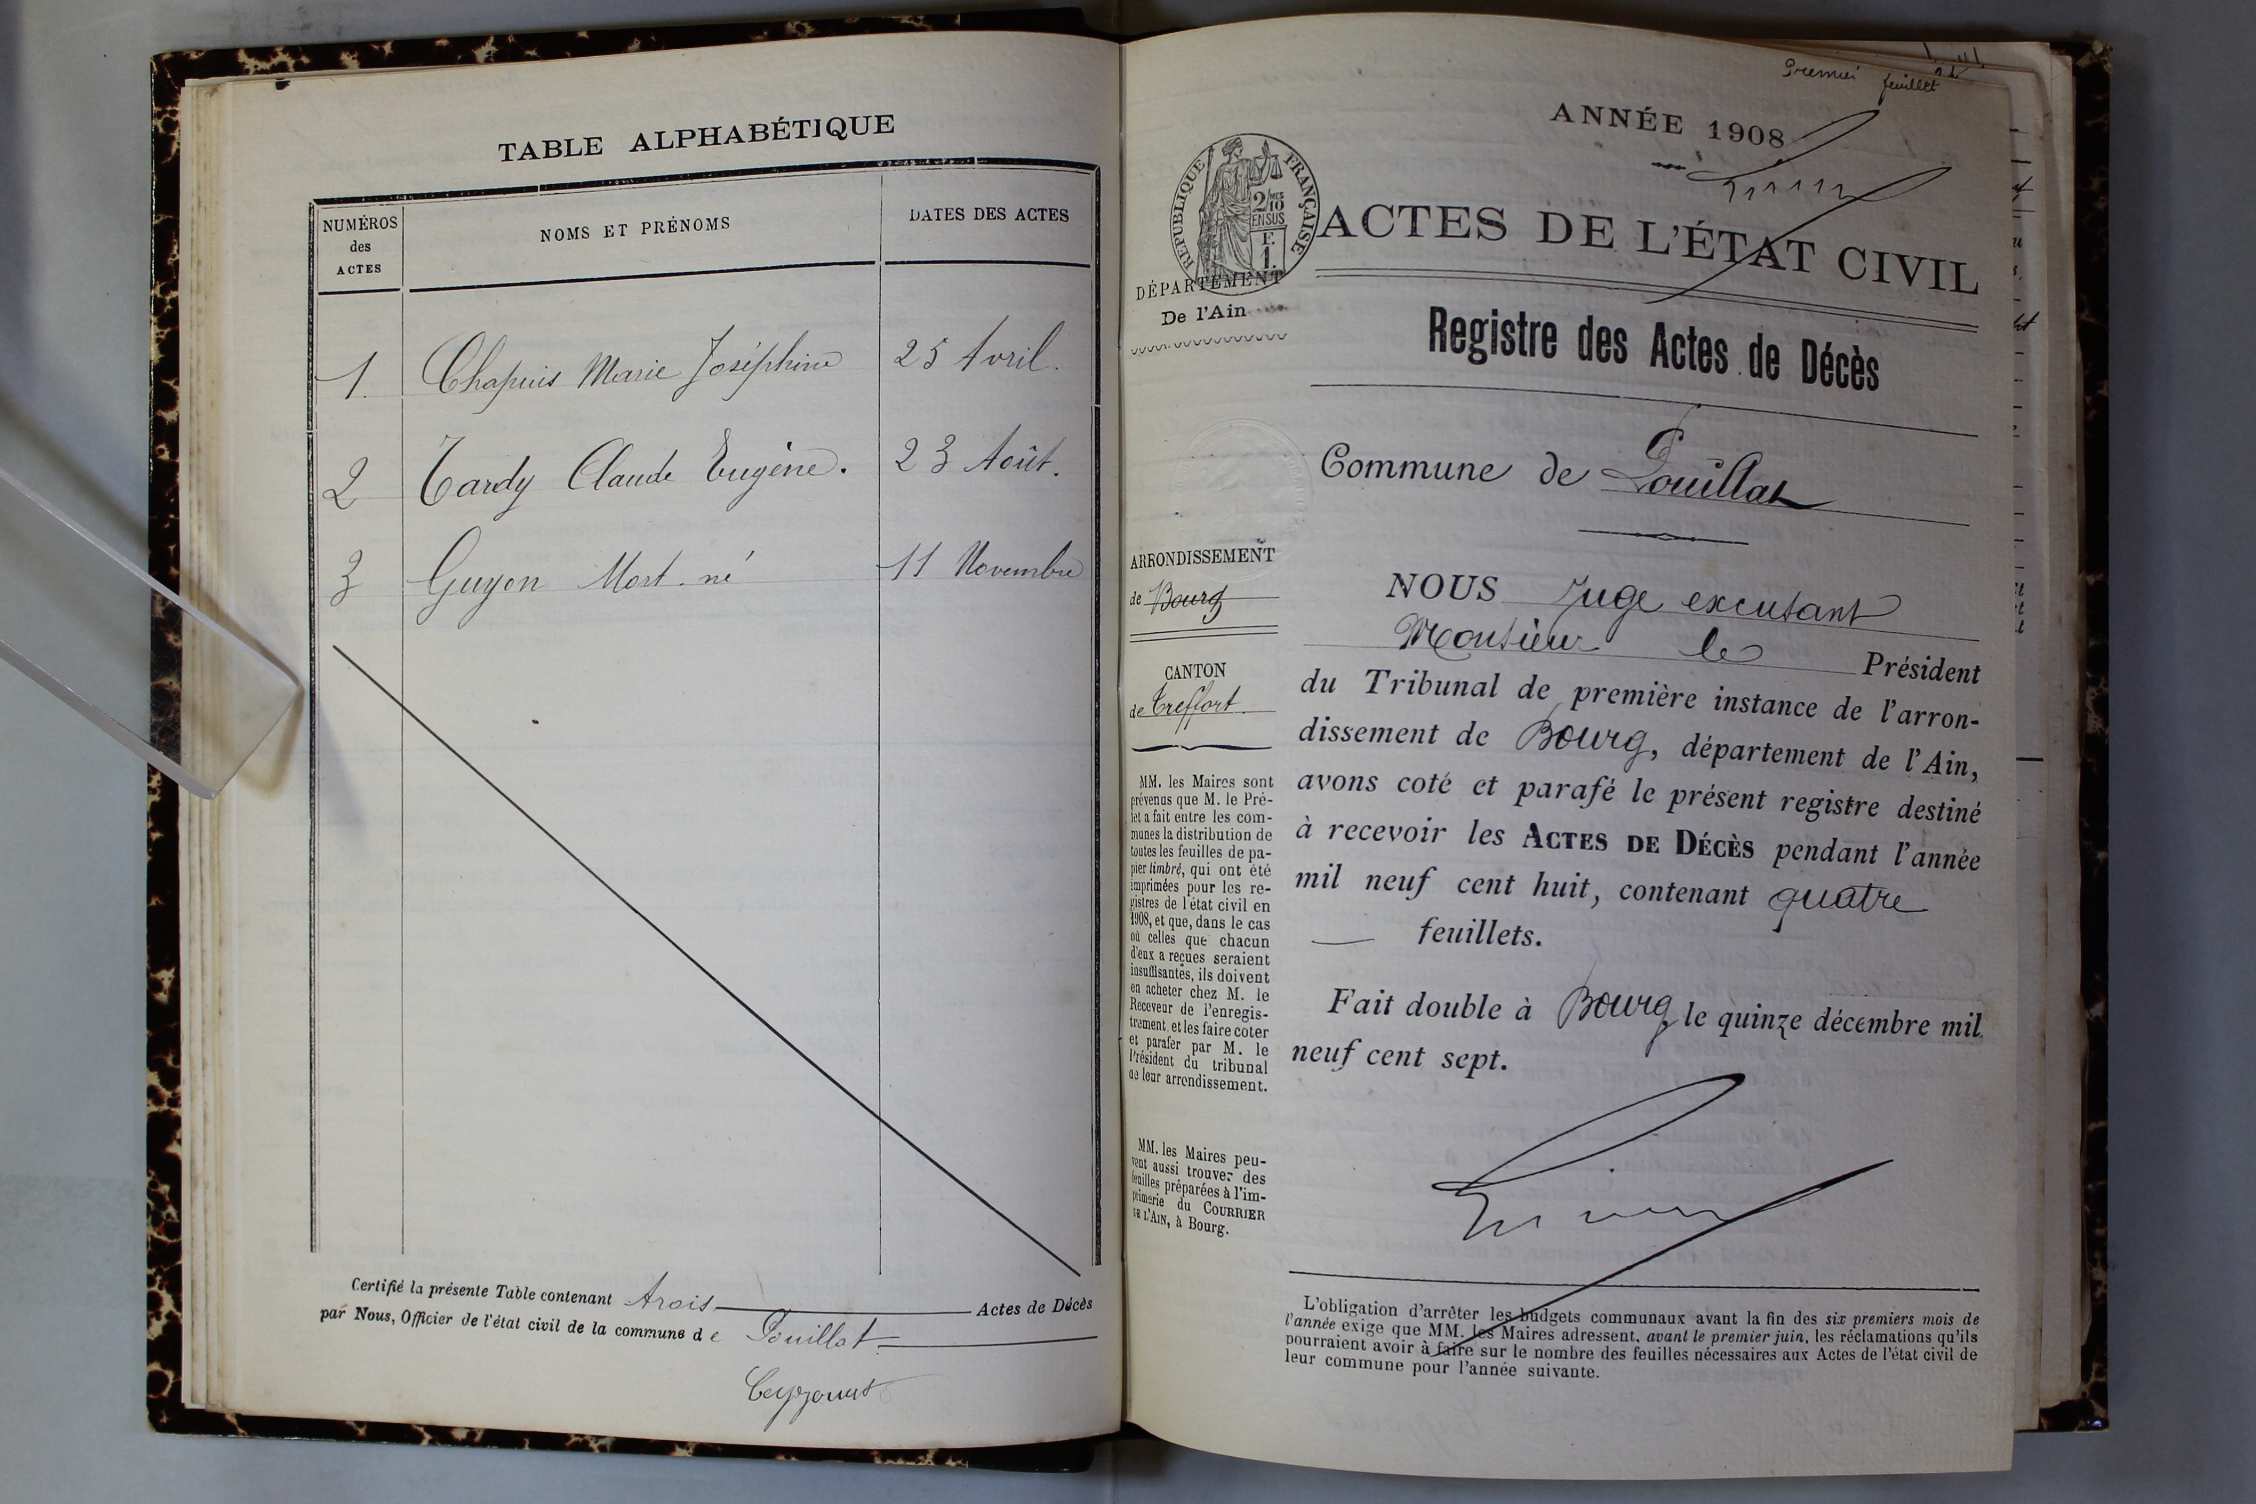 TABLE ALPHABÉTIQUE
NUMÉROS des ACTES
NOMS ET PRÉNOMS
DATES DES ACTES
1 Chapuis Marie Joséphine 25 Avril.
2 Tardy Claude Eugène. 23 Août.
3 Guyon Mort-né 11 Novembre
Certifié la présente Table contenant trois Actes de Décès
par Nous, Officier de l'état civil de la commune de Pouillat
Ceyzeriat
Premier feuillet
ANNÉE 1908
RÉPUBLIQUE FRANÇAISE
2/10 EN SUS
F. 1.
ACTES DE L'ÉTAT CIVIL
DÉPARTEMENT
De l'Ain
Registre des Actes de Décès
Commune de Pouillat
ARRONDISSEMENT
de Bourg
CANTON
de Treffort
MM. les Maires sont
prévenus que M. le Pré-
fet a fait entre les com-
munes la distribution de
toutes les feuilles de pa-
pier timbré, qui ont été
imprimées pour les re-
gistres de l'état civil en
1908, et que, dans le cas
où celles que chacun
d'eux a reçues seraient
insuffisantes, ils doivent
en acheter chez M. le
Receveur de l'enregis-
trement et les faire coter
et parafer par M. le
Président du tribunal
de leur arrondissement.
MM. les Maires peu-
vent aussi trouver des
feuilles préparées à l'im-
primerie du COURRIER
DE L'AIN, à Bourg.
NOUS Juge excusant
Monsieur le Président
du Tribunal de première instance de l'arron-
dissement de Bourg, département de l'Ain,
avons coté et parafé le présent registre destiné
à recevoir les ACTES DE DÉCÈS pendant l'année
mil neuf cent huit, contenant quatre
feuillets.
Fait double à Bourg, le quinze décembre mil
neuf cent sept.
L'obligation d'arrêter les budgets communaux avant la fin des six premiers mois de
l'année exige que MM. les Maires adressent, avant le premier juin, les réclamations qu'ils
pourraient avoir à faire sur le nombre des feuilles nécessaires aux Actes de l'état civil de
leur commune pour l'année suivante.